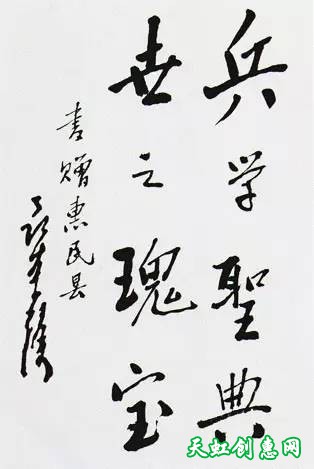 兵学聖典
世之瑰宝
書赠惠民县
天虹创意网